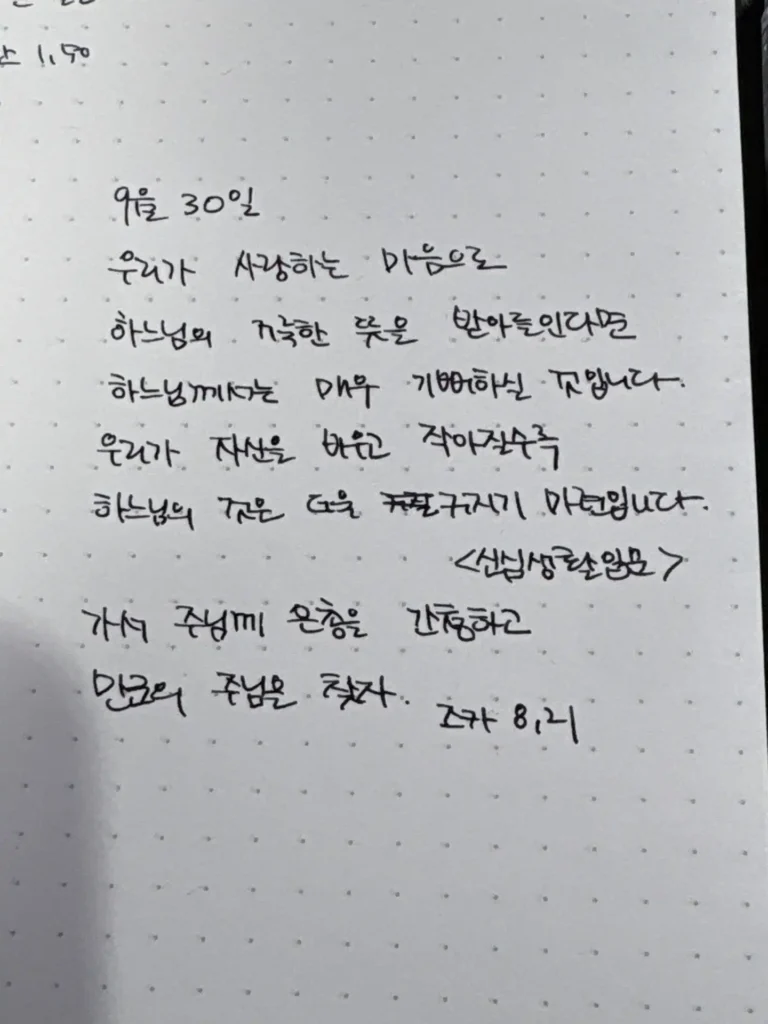 1,50
9월 30일
우리가 사랑하는 마음으로
하느님의 거룩한 뜻을 받아들인다면
하느님께서는 매우 기뻐하실 것입니다.
우리가 자신을 비우고 작아질수록
하느님의 것은 더욱 커지기 마련입니다.
가서 주님께 은총을 간청하고
만군의 주님을 찾자.
즈카 8,21